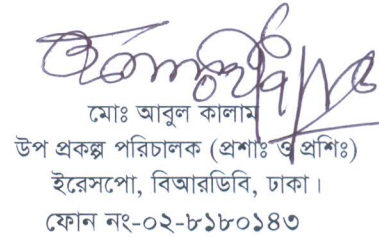 মোঃ আবুল কালাম
উপ প্রকল্প পরিচালক (প্রশাঃ ও প্রশিঃ)
ইরেসপো, বিআরডিবি, ঢাকা।
ফোন নং-০২-৮১৮০১৪৩